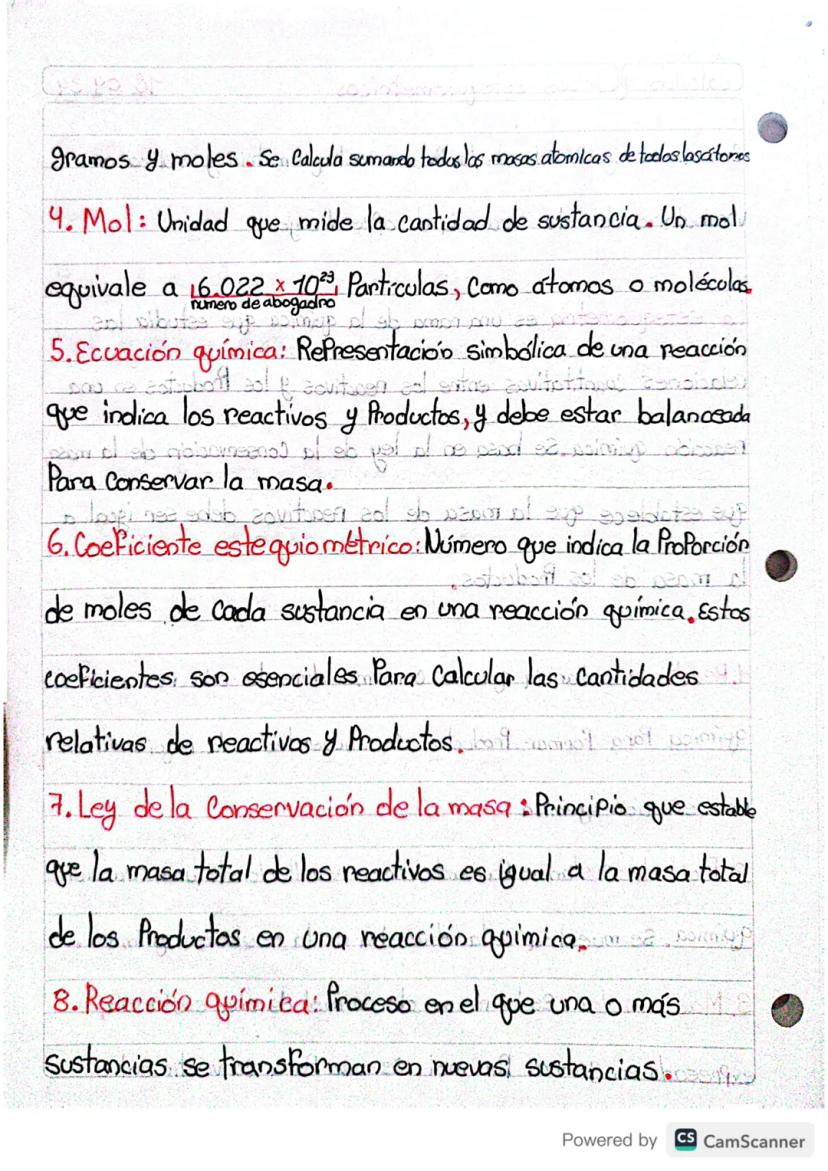 gramos y moles. Se Calcula sumando todas las masas atomicas de todos los átomos
4. Mol: Unidad que mide la cantidad de sustancia. Un mol
equivale a 6.022 x 10²³ Partículas, Como átomos o moléculas.
número de abogadro
5. Ecuación química: Representación simbólica de una reacción
que indica los reactivos y Productos, y debe estar balanceada
Para conservar la masa.
6. Coeficiente estequiométrico: Número que indica la Proporción
de moles de cada sustancia en una reacción química. Estos
coeficientes son esenciales Para Calcular las cantidades
relativas de reactivos y Productos.
7. Ley de la Conservación de la masa: Principio que estable
que la masa total de los reactivos es igual a la masa total
de los Productos en una reacción química.
8. Reacción química: Proceso en el que una o más
sustancias se transforman en nuevas sustancias.
Powered by CS CamScanner